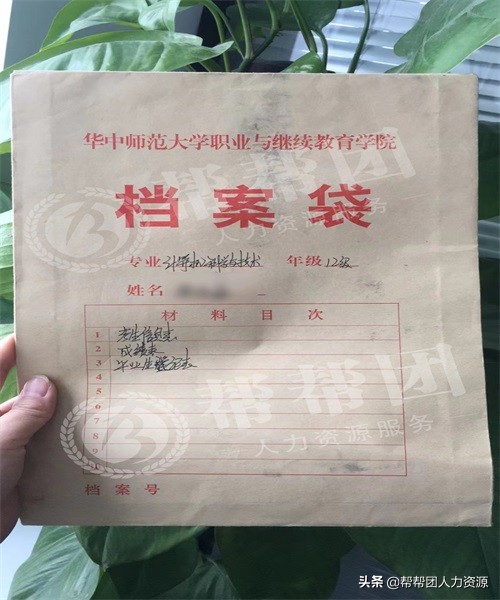 华中师范大学职业与继续教育学院
档案袋
专业 计算机科学与技术 年级 12级
姓名
材料目次
1 考生信息表
2 成绩表
3 毕业生登记表
4
5
6
7
8
9
10
档案号
帮帮团
人力资源服务
帮帮团
人力资源服务
头条 @帮帮团人力资源